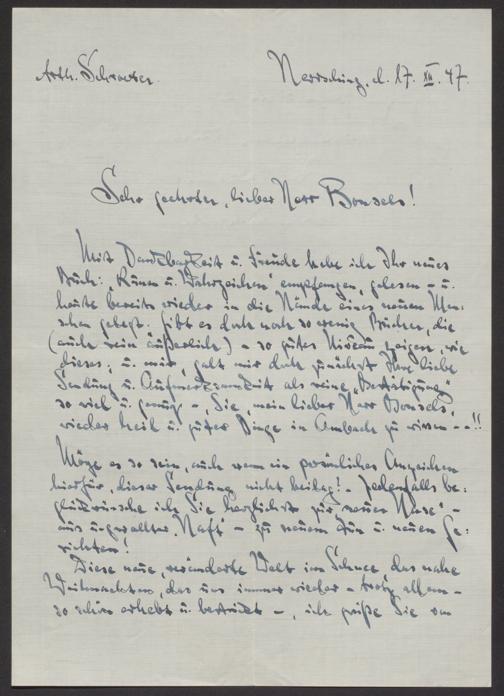 Arth. Schroeter.
Herrsching, d. 17. XII. 47.
Sehr geehrter, lieber Herr Bonsels!
Mit Dankbarkeit u. Freude habe ich Ihr neues
Buch: „Runen u. Wahrzeichen" empfangen, gelesen - u.
heute bereits wieder in die Hände eines neuen Men-
schen gelegt. Gibt es doch noch so wenig Bücher, die
(auch rein äußerlich) - so gutes Niveau zeigen, wie
dieses; u. mir, galt mir doch zunächst Ihre liebe
Sendung u. Aufmerksamkeit als reine „Bestätigung"
so viel u. genug -, Sie, mein lieber Herr Bonsels,
wieder heil u. guter Dinge in Ambach zu wissen - -!!
Möge es so sein, auch wenn ein persönliches Anzeichen
hierfür, dieser Sendung nicht beilag! - Jedenfalls be-
glückwünsche ich Sie herzlichst zur neuen Muse -
aus ungewollter „Haft" - zu neuem Tun u. neuen Ge-
sichten!
Diese neue, veränderte Welt im Schnee das nahe
Weihnachten, das uns immer wieder - trotz allem -
so schön erhebt u. bestrickt -, ich grüße Sie von